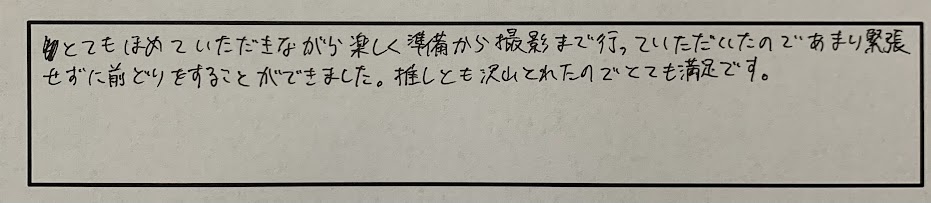 とてもほめていただきながら楽しく準備から撮影まで行っていただいたのであまり緊張
せずに前どりをすることができました。推しとも沢山とれたのでとても満足です。